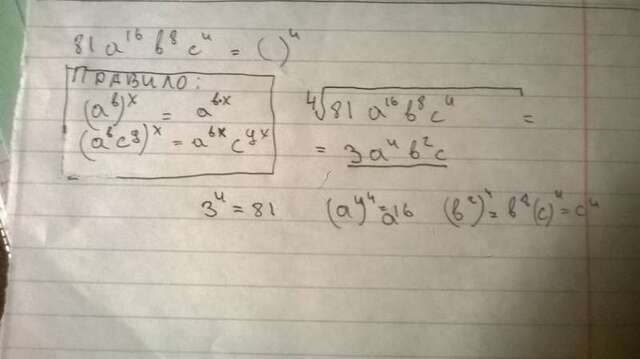 81a¹⁶b⁸c⁴ = ( )⁴
ПРАВИЛО:
(aᵇ)ˣ = aᵇ·ˣ
(aᵇcʸ)ˣ = aᵇˣcʸˣ
⁴√81a¹⁶b⁸c⁴ =
= 3a⁴b²c
3⁴ = 81 (a⁴)⁴ = a¹⁶ (b²)⁴ = b⁸ (c)⁴ = c⁴